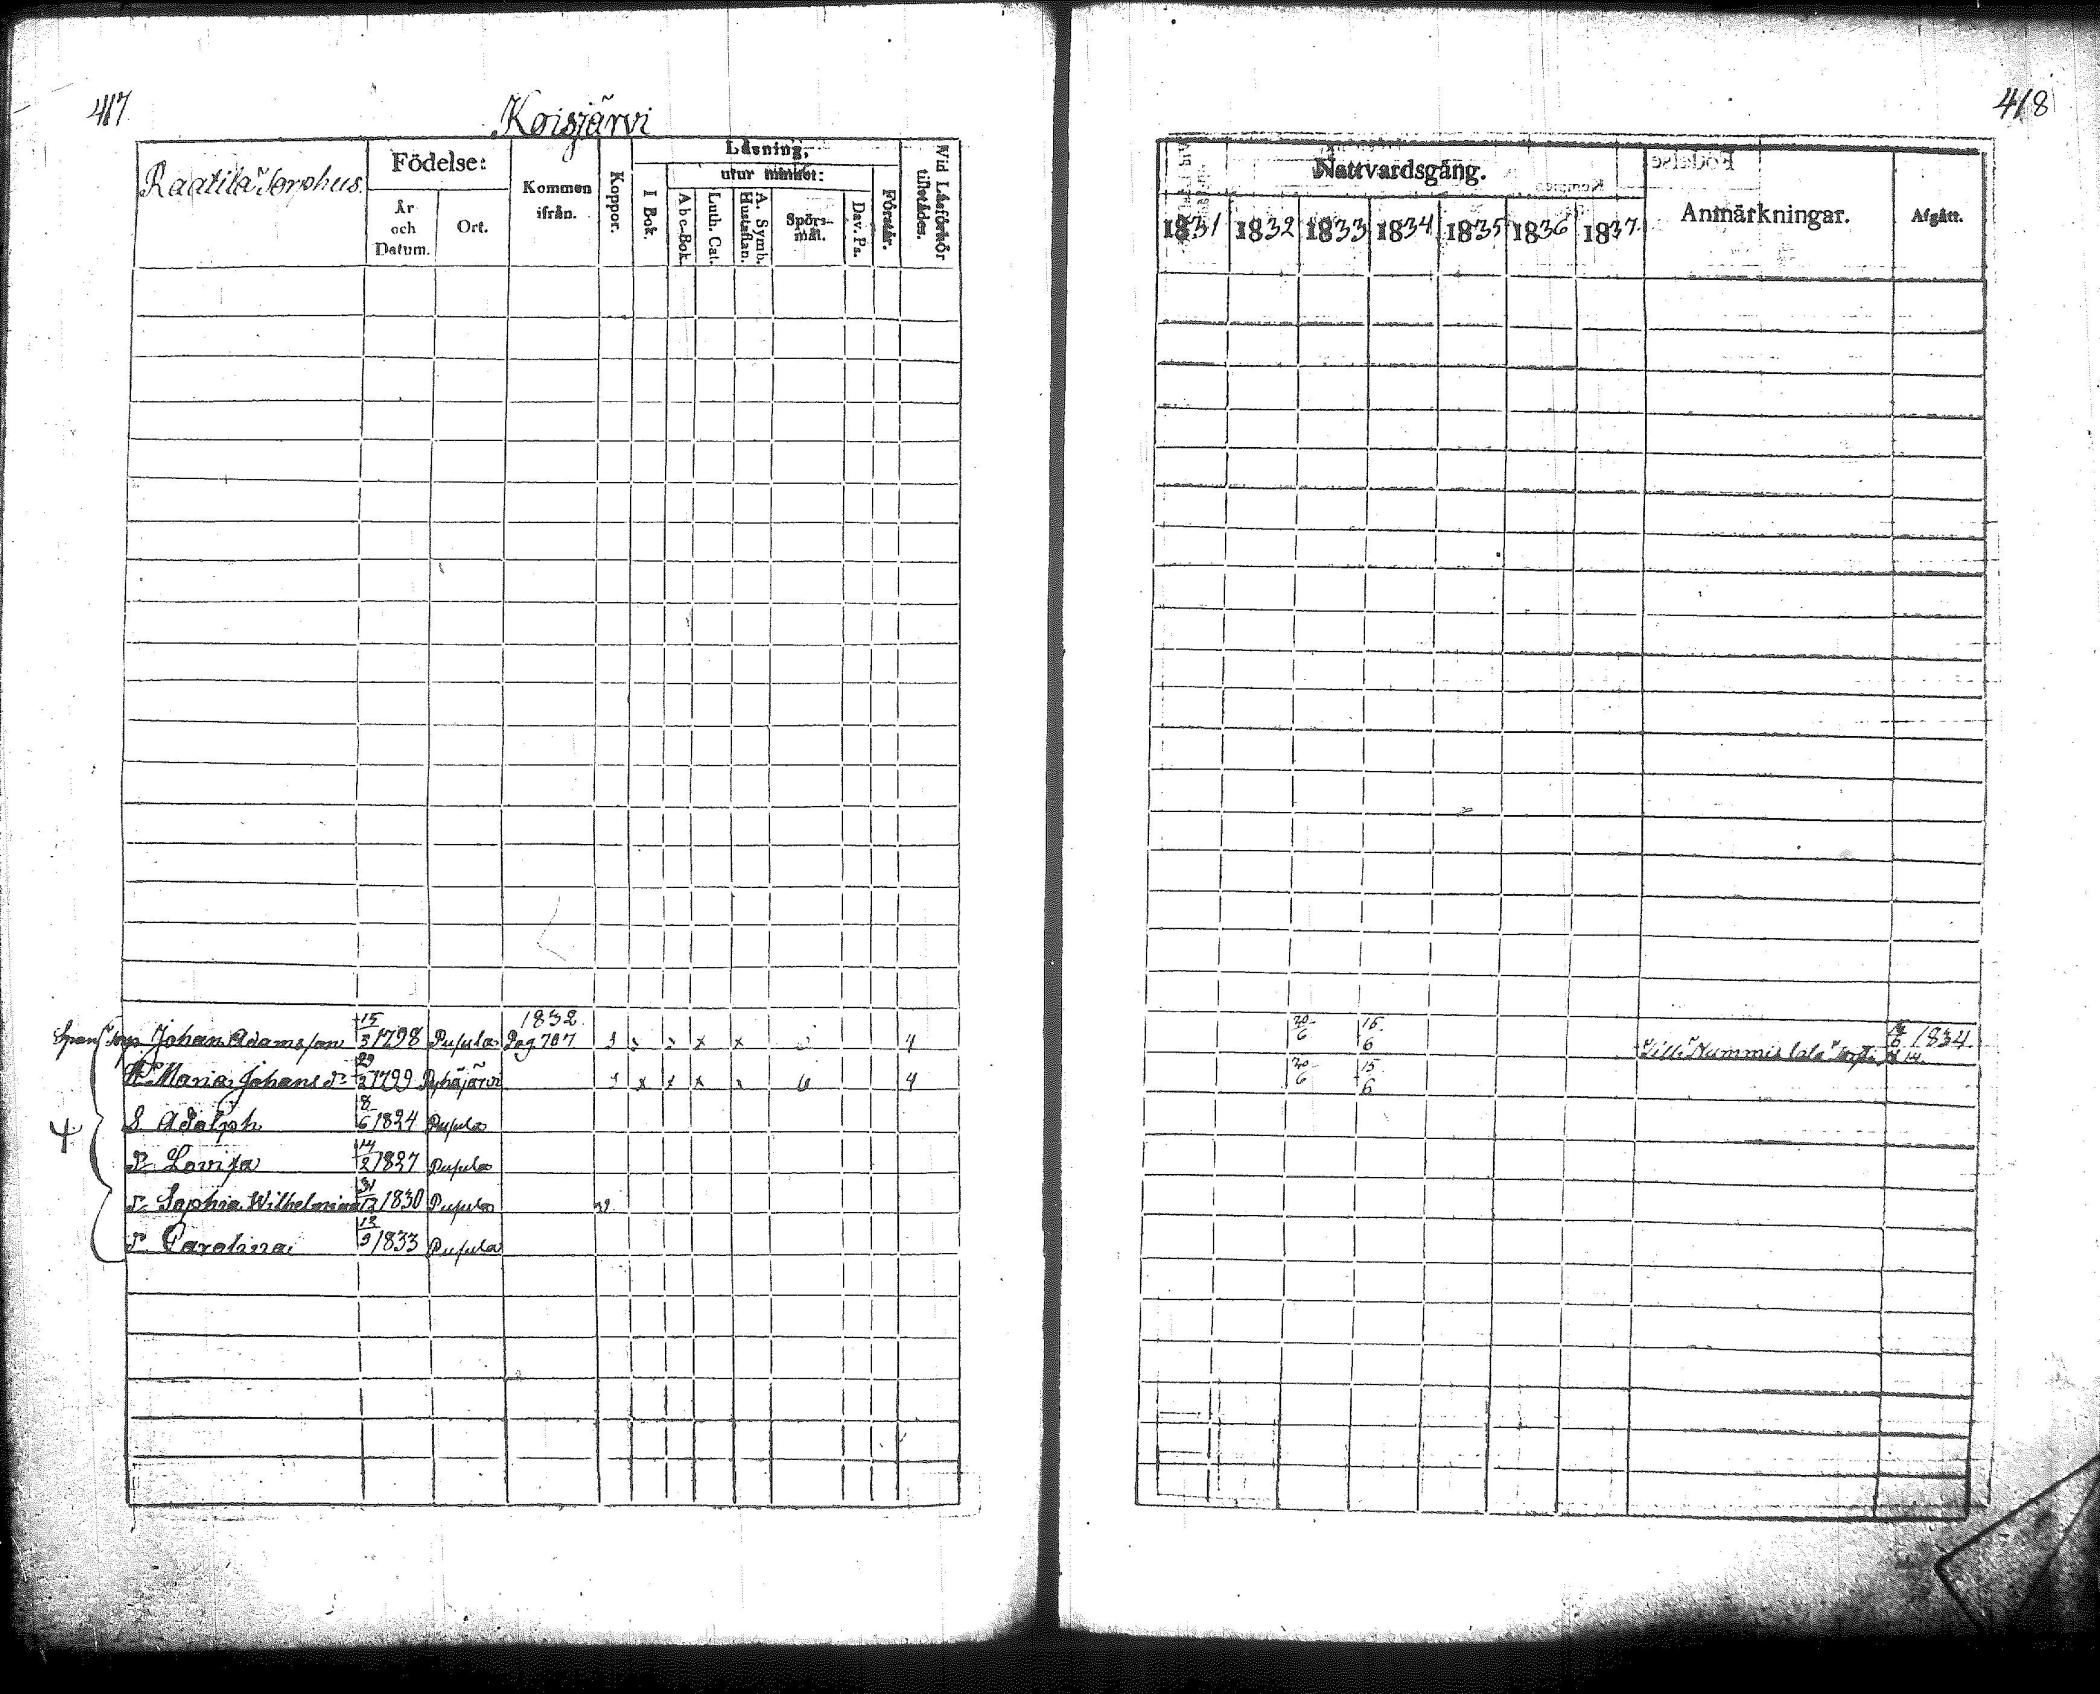 417
Koisjärvi
Raatila Torphus.
Födelse:
År och Datum.
Ort.
Kommen ifrån.
Koppor.
Läsning,
I Bok.
utur minnet:
Abc-Bok.
Luth. Cat.
A. Symb. Hustaflan.
Spörs-mål.
Dav. Ps.
Förstår.
Vid Läsförhör tillstädes.
Torp Johan Adamsson 15/3 1798 Pusula 1832 Pag 707 4
H. Maria Johans dr 1799 Pyhäjärvi 4
S. Adolph 8/6 1824 Pusula
Dr Lovisa 14/2 1827 Pusula
Dr Sophia Wilhelmina 31/12 1830 Pusula v
Dr Carolina 1833 Pusula
4
418
Nattvardsgång.
1831 1832 1833 1834 1835 1836 1837
Anmärkningar.
Afgått.
20/6 15/6 Till Nummis 1834
20/6 15/6